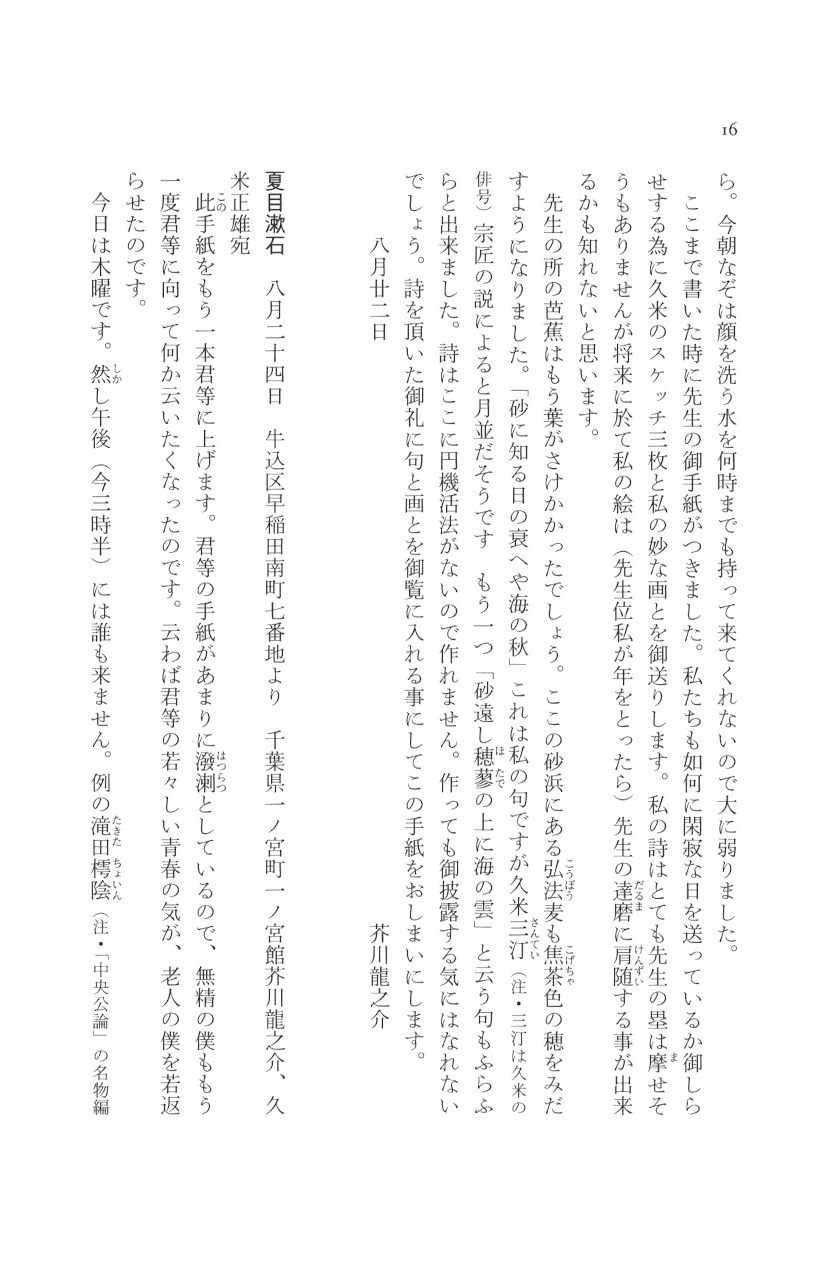 16
ら。今朝なぞは顔を洗う水を何時までも持って来てくれないので大に弱りました。
ここまで書いた時に先生の御手紙がつきました。私たちも如何に閑寂な日を送っているか御しら
せする為に久米のスケッチ三枚と私の妙な画とを御送りします。私の詩はとても先生の塁は摩せそ
うもありませんが将来に於て私の絵は（先生位私が年をとったら）先生の達磨に肩随する事が出来
るかも知れないと思います。
先生の所の芭蕉はもう葉がさけかかったでしょう。ここの砂浜にある弘法麦も焦茶色の穂をみだ
すようになりました。「砂に知る日の衰へや海の秋」これは私の句ですが久米三汀（注・三汀は久米の
俳号）宗匠の説によると月並だそうです　もう一つ「砂遠し穂蓼の上に海の雲」と云う句もふらふ
らと出来ました。詩はここに円機活法がないので作れません。作っても御披露する気にはなれない
でしょう。詩を頂いた御礼に句と画とを御覧に入れる事にしてこの手紙をおしまいにします。
八月廿二日　芥川龍之介
夏目漱石　八月二十四日　牛込区早稲田南町七番地より　千葉県一ノ宮町一ノ宮館芥川龍之介、久
米正雄宛
此手紙をもう一本君等に上げます。君等の手紙があまりに潑溂としているので、無精の僕ももう
一度君等に向って何か云いたくなったのです。云わば君等の若々しい青春の気が、老人の僕を若返
らせたのです。
今日は木曜です。然し午後（今三時半）には誰も来ません。例の滝田樗陰（注・「中央公論」の名物編